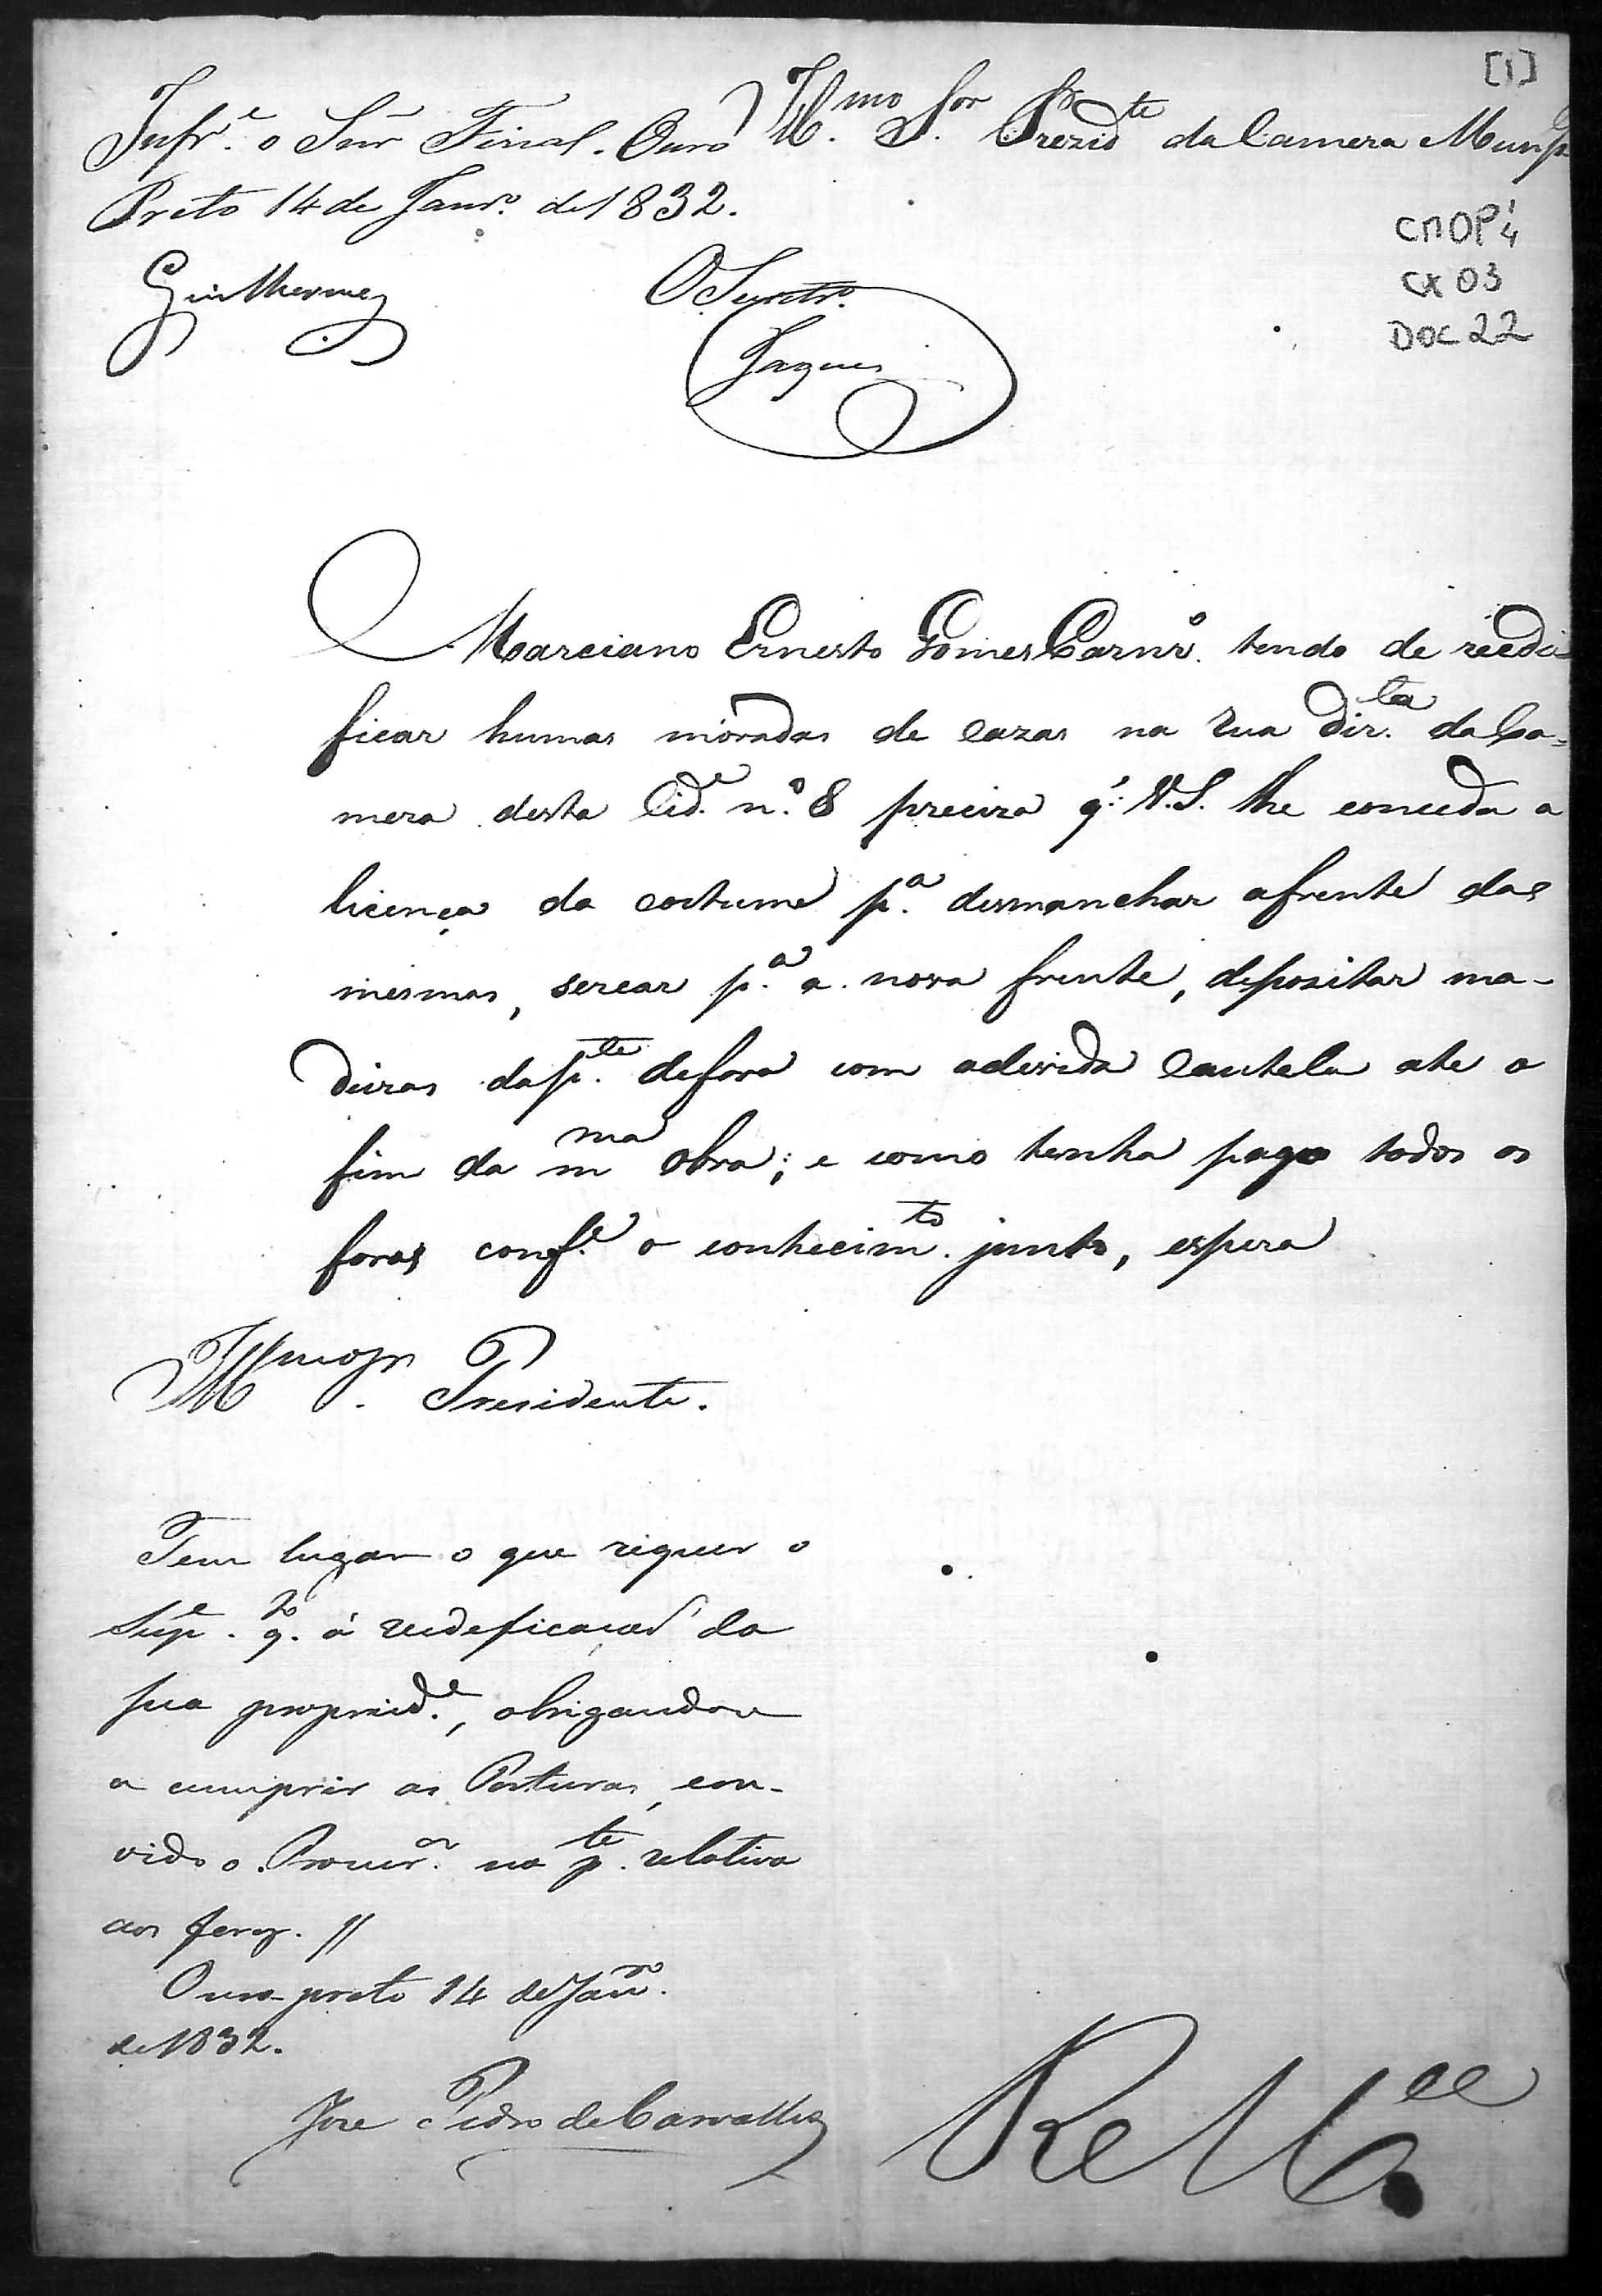 [1]
Infr.e o Snr Fiscal. Ouro
Preto 14 de Janr.o de 1832.
Guilherme
O Secretr.o
Jaques
Ill.mo Sor Prezid.te da Camera Munp.
CMOP 1/4
CX 03
DOC 22
Marciano Ernesto Gomes Carnr.o tendo de reedi=
ficar humas moradas de cazas na rua dir.ta da Ca=
mera desta Cid.e n.o 8 preciza q' V.S. lhe conceda a
licença do costume p.a desmanchar a frente das
mesmas, sercar p.a a nova frente, depozitar ma-
deiras da p.te de fora com a devida cautela ate o
fim da m.ma obra; e como tenha pago todos os
foros conf.e o conhecim.to junto, espera
Ill.mo Sr. Presidente.
Tem lugar o que requer o
Sup.e q.to á reedeficação da
sua propried.e, obrigandose
a cumprir as Posturas, ou-
vido o Procur.or na p.te relativa
aos foros. //
Ouro preto 14 de Janr.o
de 1832.
Jose Pedro de Carvalho
R e M.ce